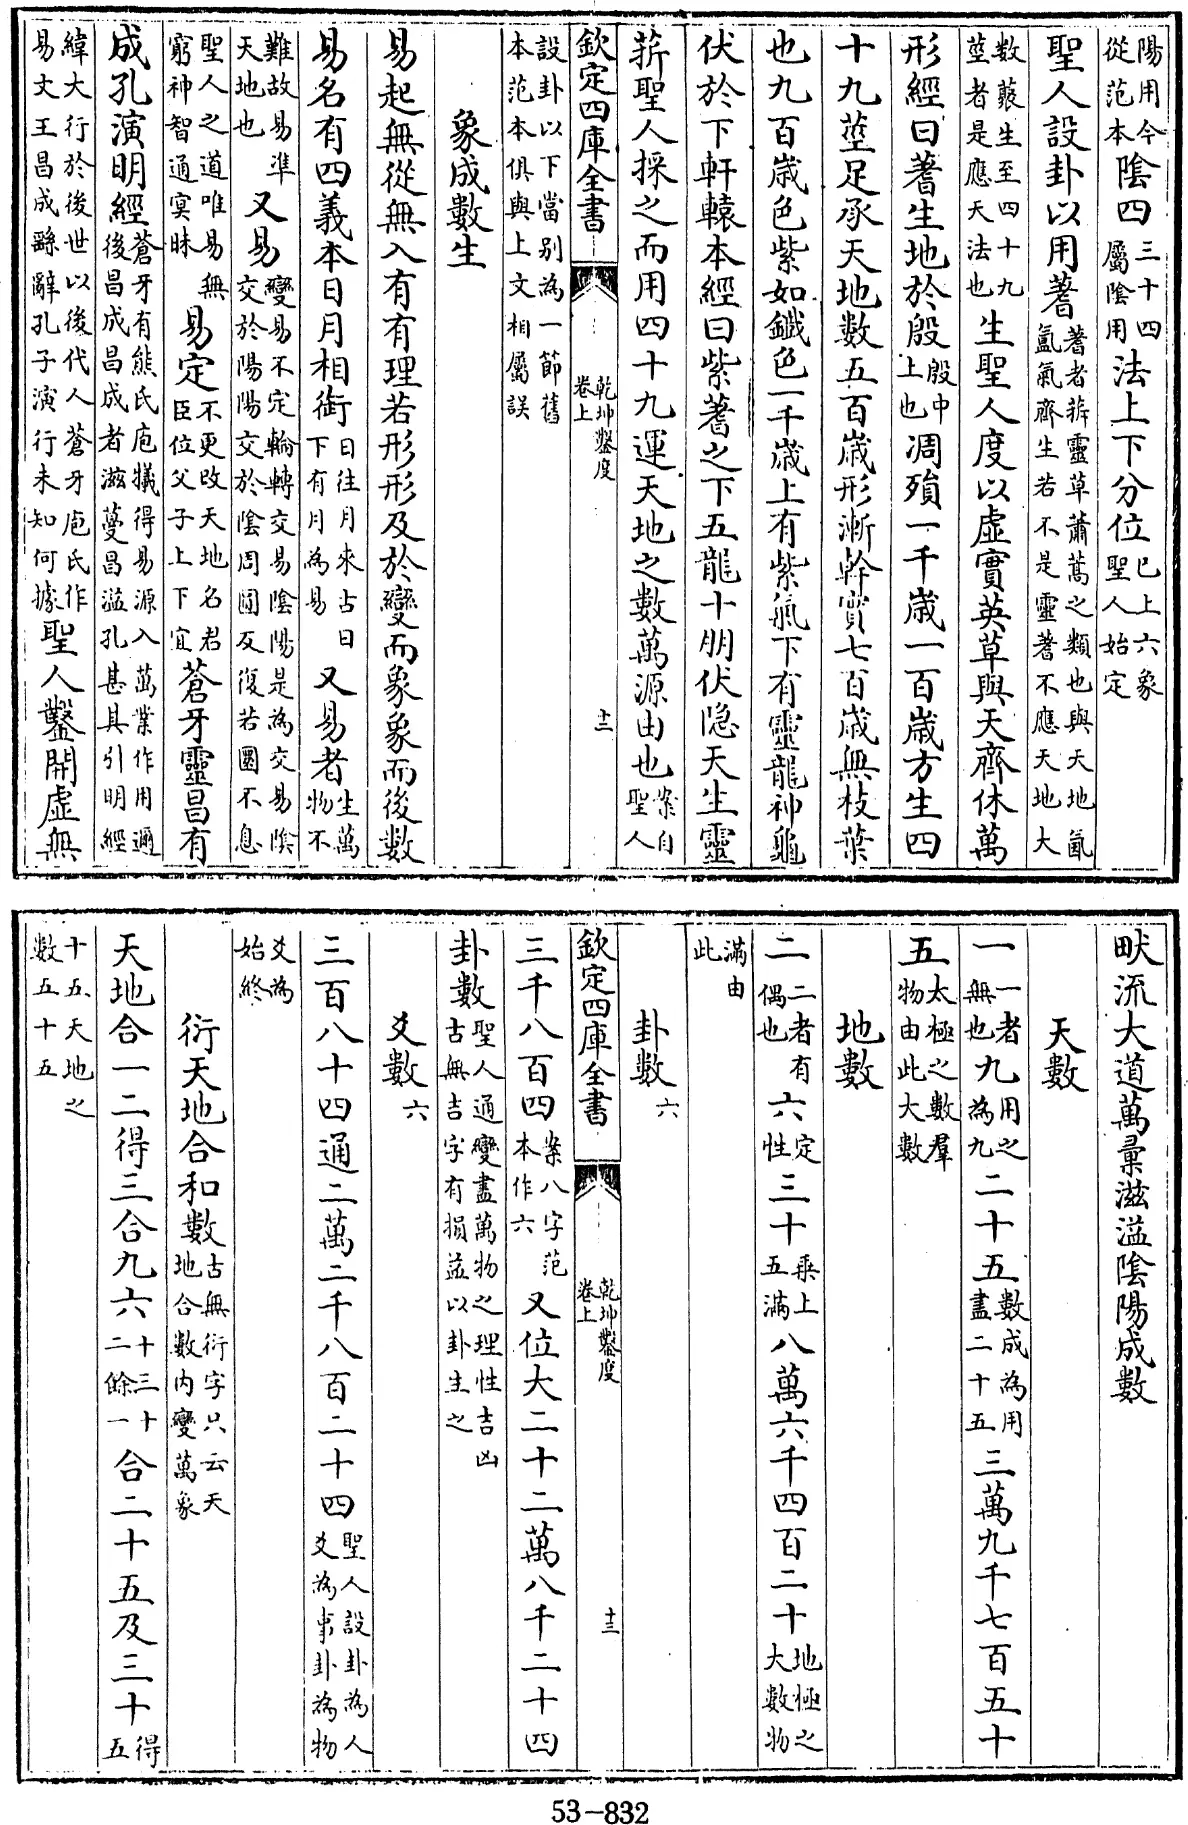 陽用今從范本陰四三十四屬陰用法上下分位已上六象聖人始定
聖人設卦以用蓍蓍者菥靈草蕭蒿之類也與天地氤氳氣齊生若不是靈蓍不應天地大
數蓛生至四十九莖者是應天法也生聖人度以虛實英草與天齊休萬
形經曰蓍生地於殷殷中上也凋殞一千歳一百歳方生四
十九莖足承天地數五百歳形漸幹實七百歳無枝葉
也九百歳色紫如鐵色一千歳上有紫氣下有靈龍神龜
伏於下軒轅本經曰紫蓍之下五龍十朋伏隱天生靈
菥聖人採之而用四十九運天地之數萬源由也案自聖人
欽定四庫全書 乾坤鑿度卷上 十二
設卦以下當别為一節舊本范本俱與上文相屬誤
象成數生
易起無從無入有有理若形形及於變而象象而後數
易名有四義本日月相銜日往月來古日下有月為易又易者生萬物不
難故易準天地也又易變易不定輪轉交易隂陽是為交易隂交於陽陽交於陰周圓反復若圜不息
聖人之道唯易無窮神智通㝠昧易定不更改天地名君臣位父子上下宜蒼牙靈昌有
成孔演明經蒼牙有熊氏庖犧得易源入萬業作用邇後昌成昌成者滋蔓昌溢孔甚其引明經
緯大行於後世以後代人蒼牙庖氏作易文王昌成繇辭孔子演行未知何據聖人鑿開虛無
畎流大道萬彚滋溢陰陽成數
天數
一一者無也九用之為九二十五數成為用盡二十五三萬九千七百五十
五太極之數羣物由此大數
地數
二二者有偶也六定性三十乘上五滿八萬六千四百二十地極之大數物
滿由此
卦數六
欽定四庫全書 乾坤鑿度卷上 十三
三千八百四案八字范本作六又位大二十二萬八千二十四
卦數聖人通變盡萬物之理性吉凶古無吉字有損益以卦主之
爻數六
三百八十四通二萬二千八百二十四聖人設卦為人爻為事卦為物
爻為始終
衍天地合和數古無衍字只云天地合數内變萬象
天地合一二得三合九六十三十二餘一十合二十五及三十得五
十五天地之數五十五
53-832